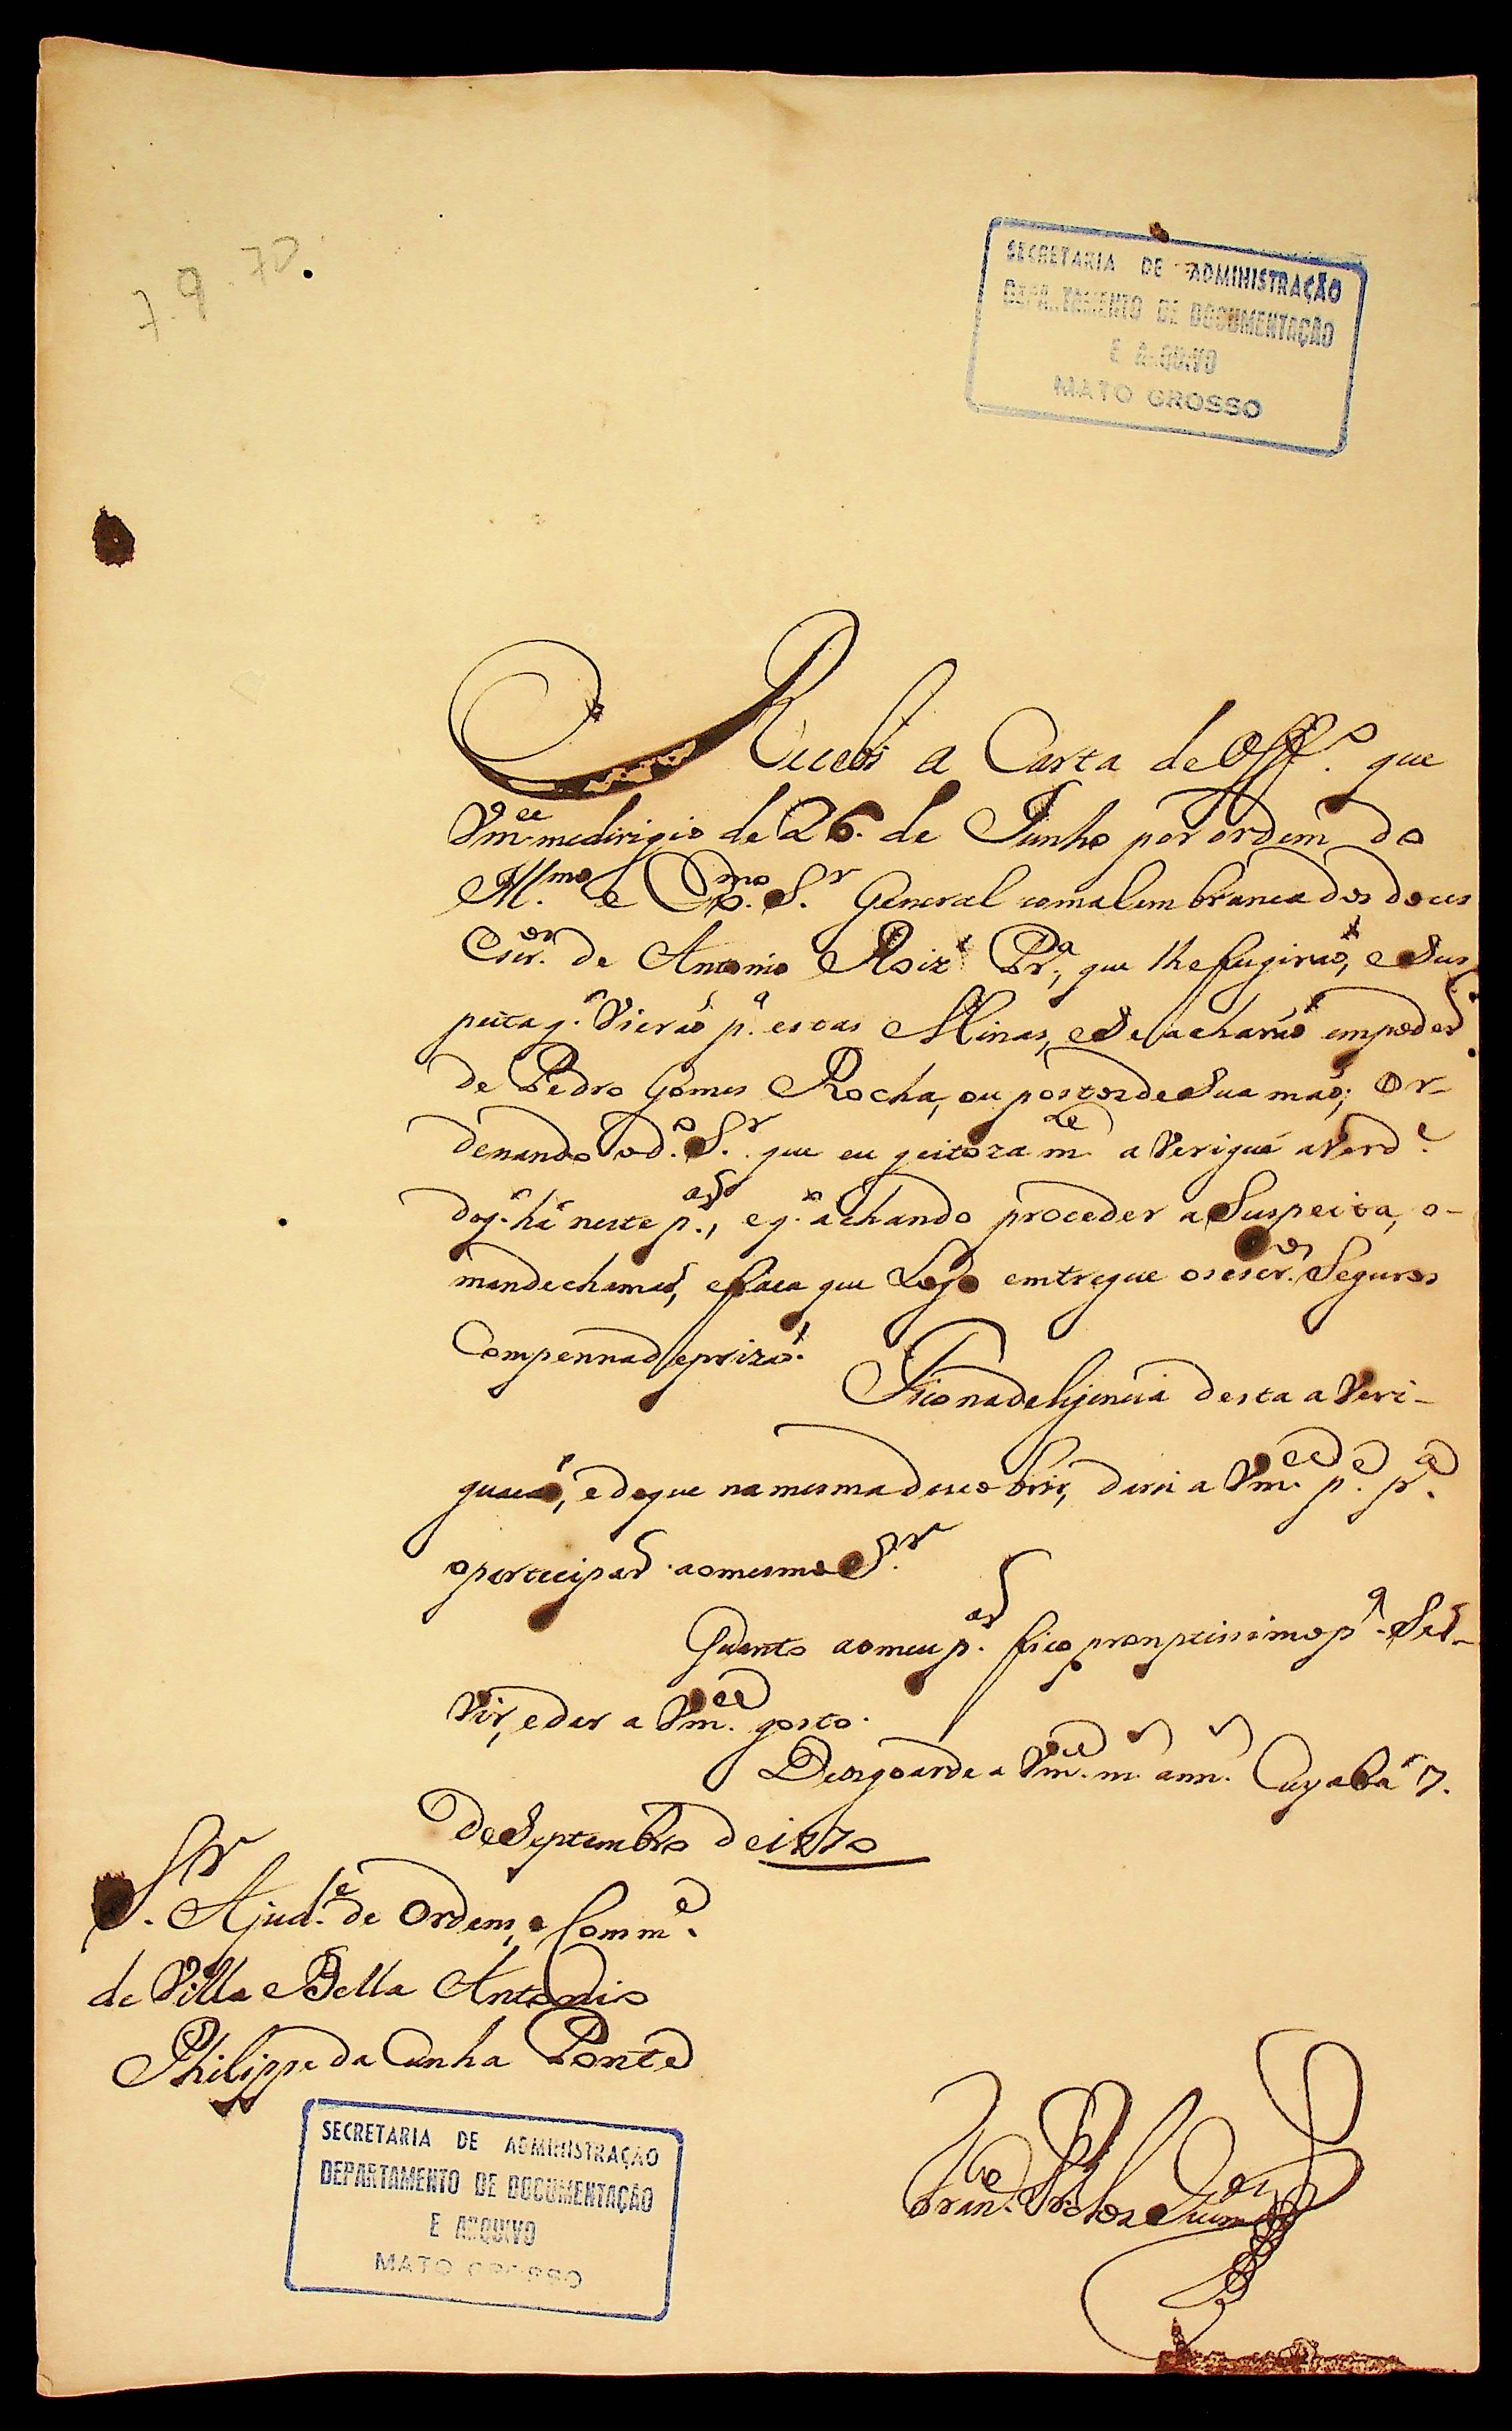 7.9.70.
SECRETARIA DE ADMINISTRAÇÃO
DEPARTAMENTO DE DOCUMENTAÇÃO
E ARQUIVO
MATO GROSSO
Recebi a Carta de Off.º que
Vm.ce medirigio de 26. de Junho por ordem do
Ill.mo e Ex.mo S.r General comalembranca dos dous
Escr.os de Antonio Roiz' Pr.a, que lhefugiraó, e Sus
peita q. Vieraó p.a estas Minas, eSe acharaó empoder
de Pedro Gomes Rocha, ou postosdeSua maó; Or-
denando od.º S.r que eu geitozam.te a Verigue aVerd.e
doq. há neste p.ar, eq. achando proceder a Suspeita, o-
mandechamar, efaca que Logo emtregue osescr.os Seguros
Compennadeprizaó.
Ficonadeligencia desta aVeri-
guacaó, edoque namesmadescobrir, darei a Vm.ce p.e p.a
opartecipar aomesmo S.r
Quanto aomeu p.ar fico promptissimo p.a Ser-
Vir, edar a Vm.ce gosto.
Deosgoarde a Vm.ce m.s ann.s Cuyabá 7.
deSeptembro de 1770
S.r Ajud.e de Ordens, e Comm.e
de Villa Bella Antonio
Philippe da Cunha Ponte
SECRETARIA DE ADMINISTRAÇÃO
DEPARTAMENTO DE DOCUMENTAÇÃO
E ARQUIVO
MATO GROSSO
Fran.co